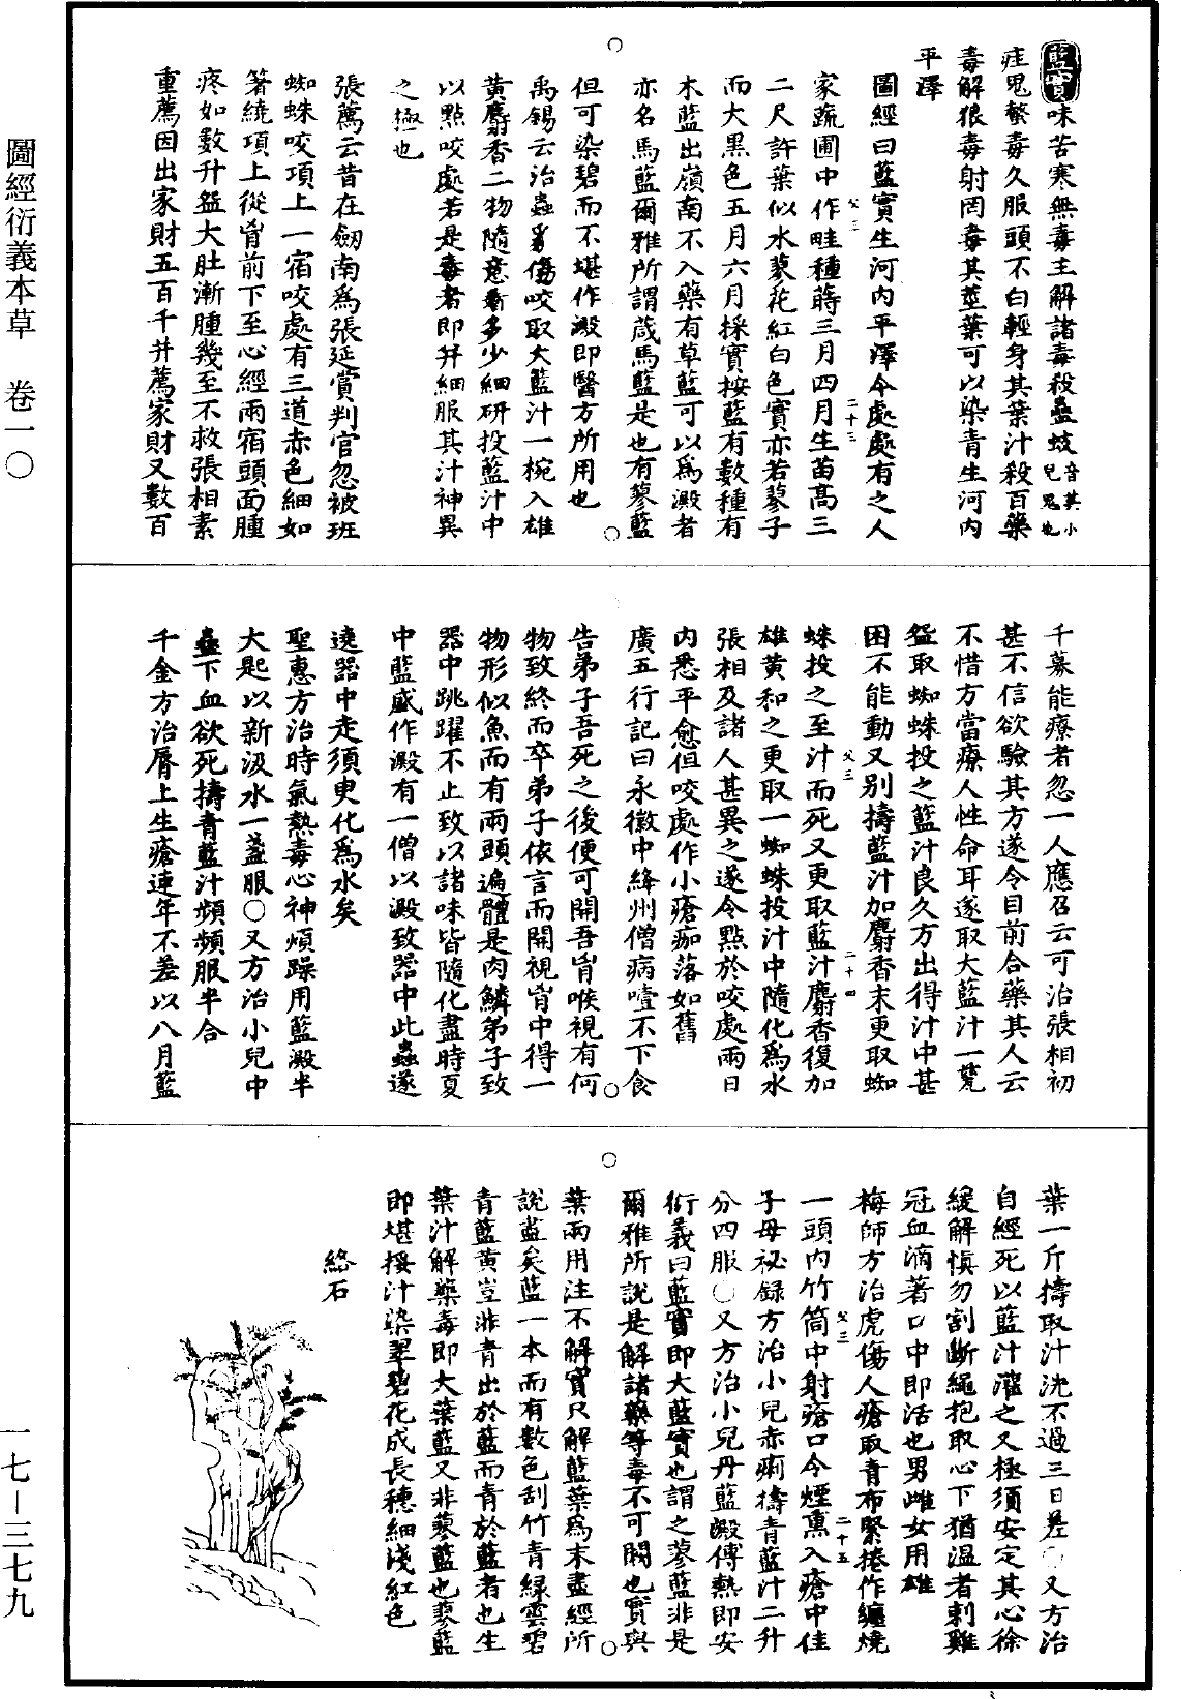 圖經衍義本草　卷一〇
一七—三七九
藍實味苦寒無毒主解諸毒殺蠱蚑音其小兒鬼也
疰鬼螫毒久服頭不白輕身其葉汁殺百藥
毒解狼毒射罔毒其莖葉可以染青生河內
平澤
圖經曰藍實生河內平澤今處處有之人
家蔬圃中作畦種蒔三月四月生苗高三
二尺許葉似水蓼花紅白色實亦若蓼子
而大黑色五月六月採實按藍有數種有
木藍出嶺南不入藥有草藍可以為澱者
亦名馬藍爾雅所謂葴馬藍是也有蓼藍
但可染碧而不堪作澱即醫方所用也
禹錫云治蟲豸傷咬取大藍汁一椀入雄
黃麝香二物隨意看多少細研投藍汁中
以點咬處若是毒者即并細服其汁神異
之極也
張薦云昔在劒南為張延賞判官忽被班
蜘蛛咬項上一宿咬處有三道赤色細如
箸繞項上從胷前下至心經兩宿頭面腫
疼如數升盌大肚漸腫幾至不救張相素
重薦因出家財五百千并薦家財又數百
千募能療者忽一人應召云可治張相初
甚不信欲驗其方遂令目前合藥其人云
不惜方當療人性命耳遂取大藍汁一甆
盌取蜘蛛投之藍汁良久方出得汁中甚
困不能動又別擣藍汁加麝香末更取蜘
蛛投之至汁而死又更取藍汁麝香復加
雄黃和之更取一蜘蛛投汁中隨化為水
張相及諸人甚異之遂令點於咬處兩日
內悉平愈但咬處作小瘡痂落如舊
廣五行記曰永徽中絳州僧病噎不下食
告弟子吾死之後便可開吾胷喉視有何
物致終而卒弟子依言而開視胷中得一
物形似魚而有兩頭遍體是肉鱗弟子致
器中跳躍不止致以諸味皆隨化盡時夏
中藍盛作澱有一僧以澱致器中此蟲遂
遶器中走須臾化為水矣
聖惠方治時氣熱毒心神煩躁用藍澱半
大匙以新汲水一盞服○又方治小兒中
蠱下血欲死擣青藍汁頻頻服半合
千金方治脣上生瘡連年不差以八月藍
葉一斤擣取汁洗不過三日差○又方治
自經死以藍汁灌之又極須安定其心徐
緩解慎勿割斷繩抱取心下猶溫者刺雞
冠血滴著口中即活也男雌女用雄
梅師方治虎傷人瘡取青布緊捲作纏燒
一頭內竹筒中射瘡口令煙熏入瘡中佳
子母祕錄方治小兒赤痢擣青藍汁二升
分四服○又方治小兒丹藍澱傅熱即安
衍義曰藍實即大藍實也謂之蓼藍非是
爾雅所說是解諸藥等毒不可闕也實與
葉兩用注不解實只解藍葉為未盡經所
說盡矣藍一本而有數色刮竹青綠雲碧
青藍黃豈非青出於藍而青於藍者也生
葉汁解藥毒即大葉藍又非蓼藍也蓼藍
即堪揉汁染翠碧花成長穗細淺紅色
絡石